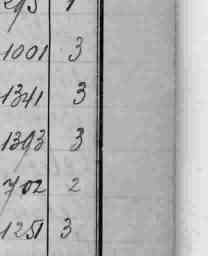 1001 3
1341 3
1393 3
702 2
1251 3